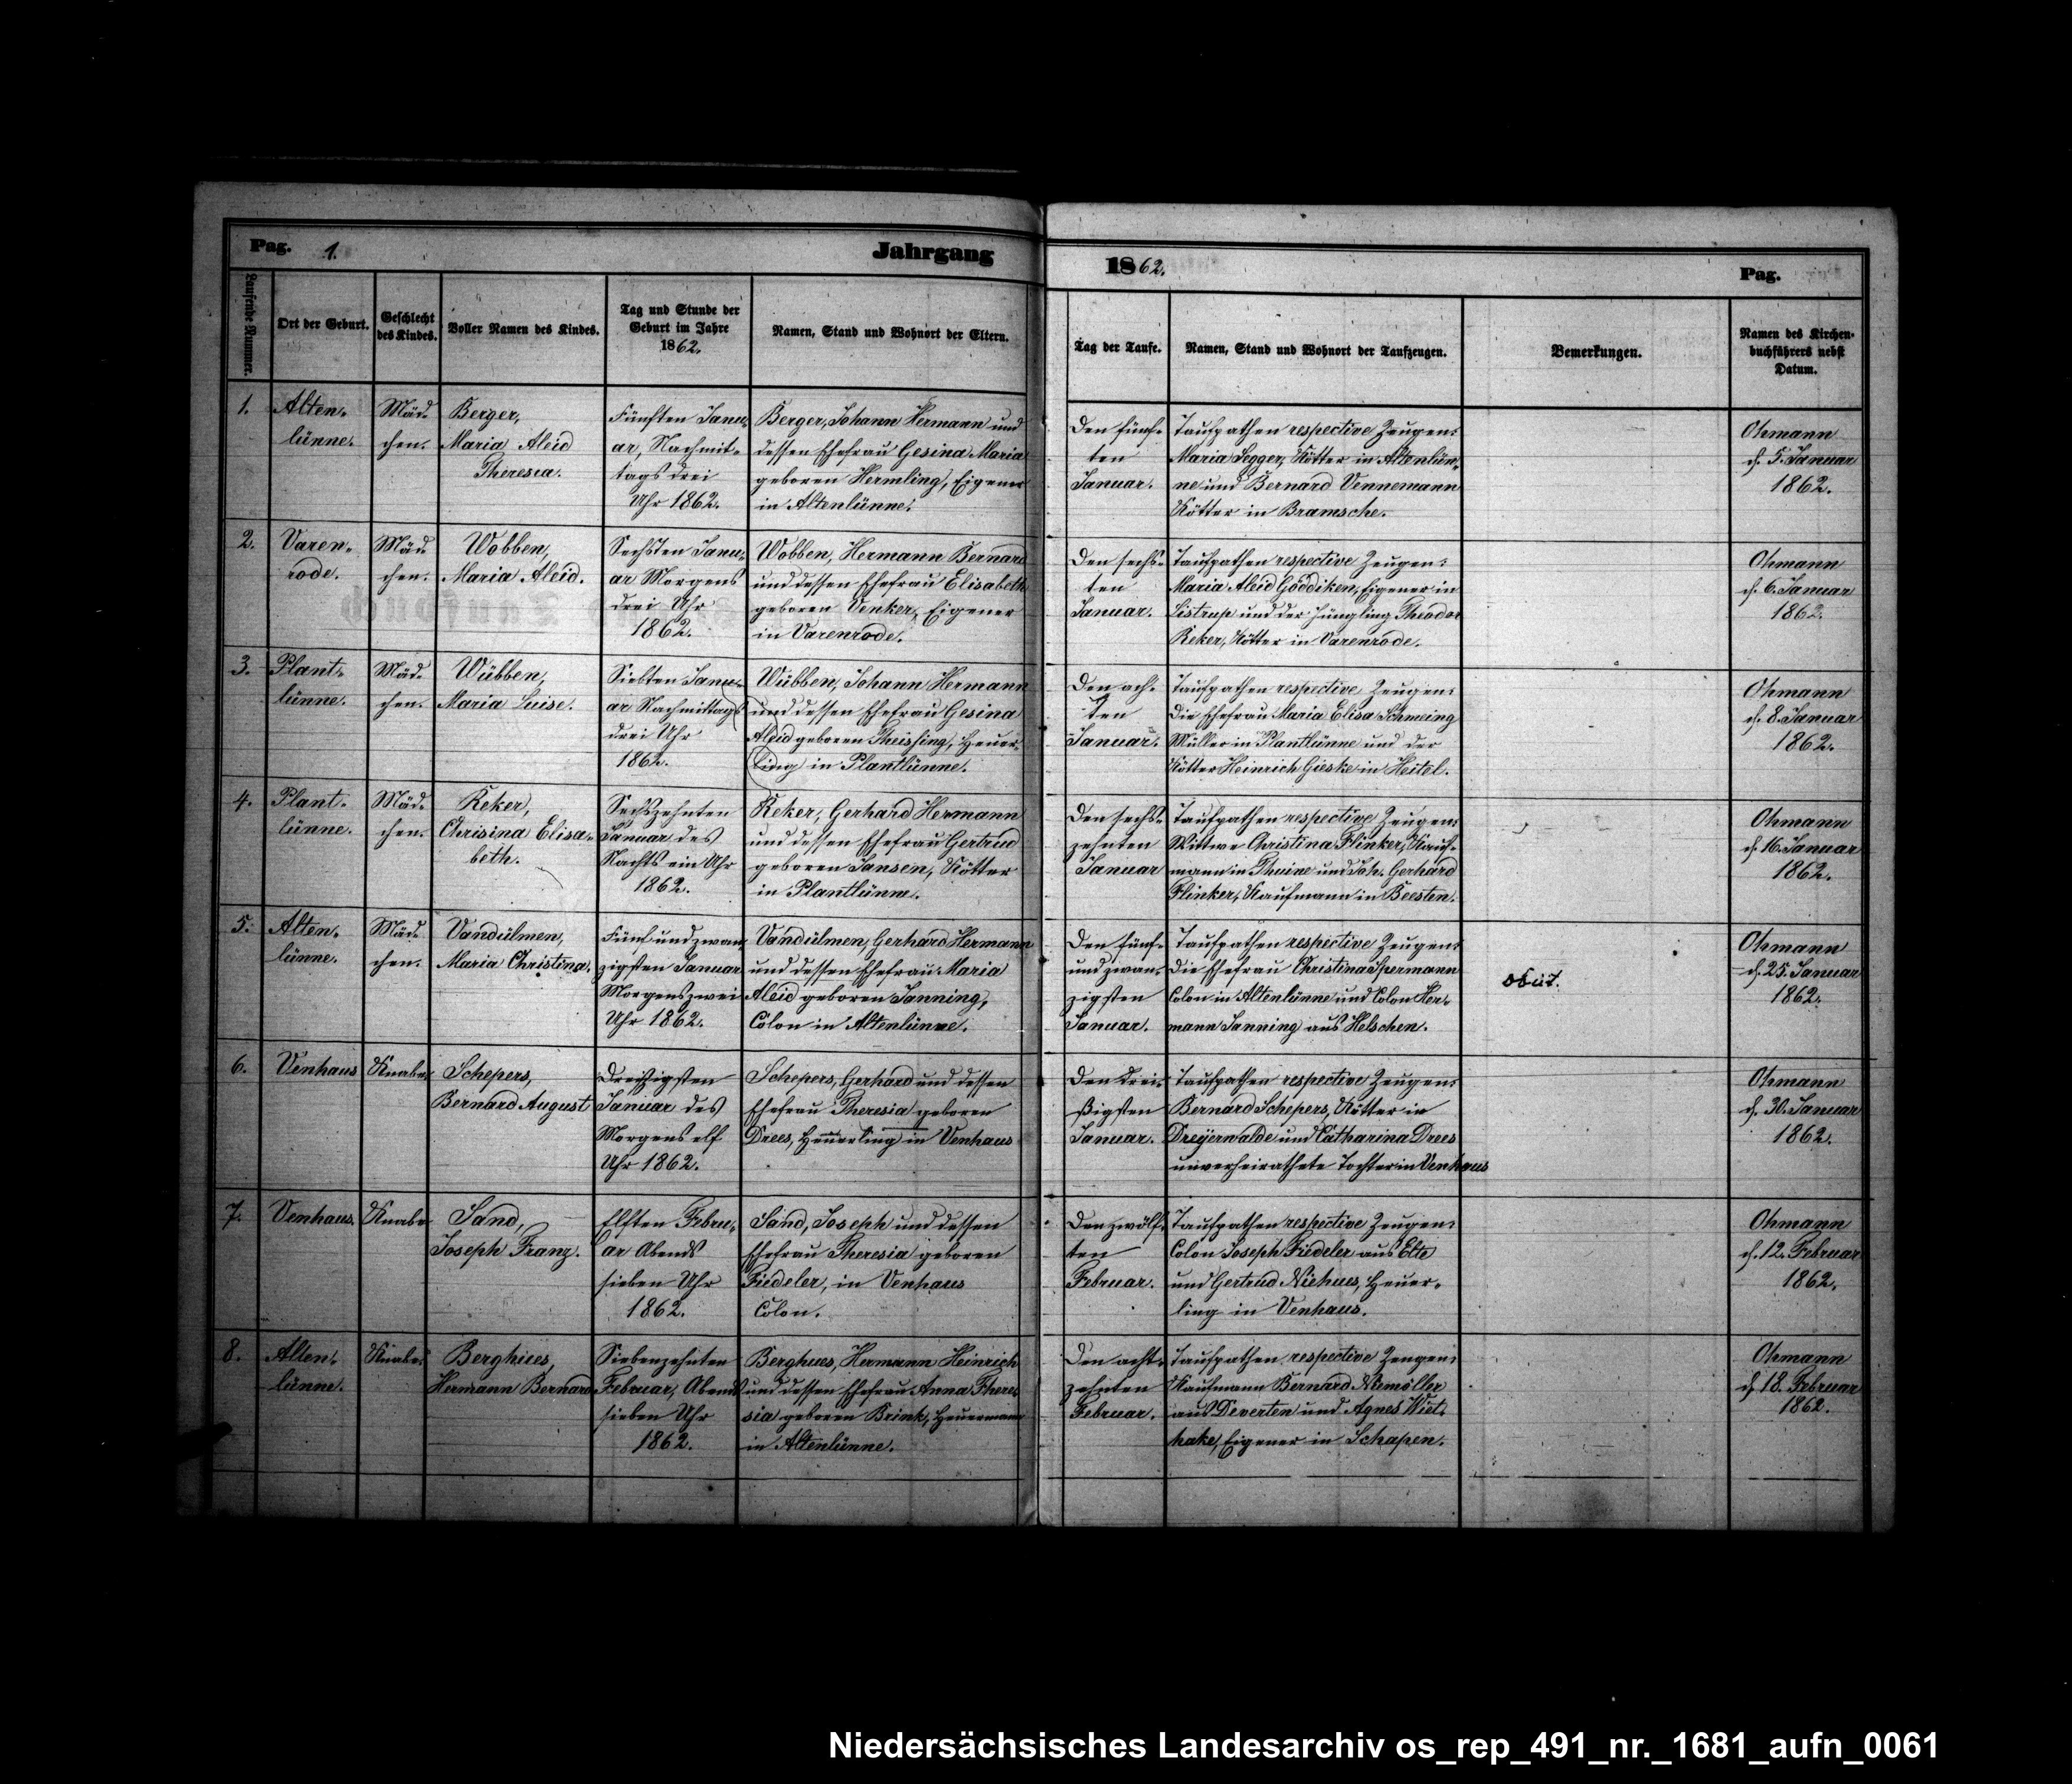 Pag. 1.
Jahrgang
1862.
Pag.
Laufende Nummer.
Ort der Geburt.
Geschlecht
des Kindes.
Voller Namen des Kindes.
Tag und Stunde der
Geburt im Jahre
1862.
Namen, Stand und Wohnort der Eltern.
Tag der Taufe.
Namen, Stand und Wohnort der Taufzeugen.
Bemerkungen.
Namen des Kirchen-
buchführers nebst
Datum.
1.
Alten-
lünne.
Mäd-
chen.
Berger,
Maria Aleid
Theresia.
Fünften Janu-
ar, Nachmit-
tags drei
Uhr 1862.
Berger, Johann Hermann und
dessen Ehefrau Gesina Maria
geboren Hermling, Eigener
in Altenlünne.
Den fünf-
ten
Januar.
Taufpathen respective Zeugen:
Maria Segger, Kötter in Altenlün-
ne und Bernard Vennemann
Kötter in Bramsche.
Ohmann
d. 5. Januar
1862.
2.
Varen-
rode.
Mäd-
chen.
Wobben,
Maria Aleid.
Sechsten Janu-
ar Morgens
drei Uhr
1862.
Wobben, Hermann Bernard
und dessen Ehefrau Elisabeth
geboren Venker, Eigener
in Varenrode.
Den sechs-
ten
Januar.
Taufpathen respective Zeugen:
Maria Aleid Göddiken, Eigener in
Listrup und der Jüngling Theodor
Reker, Kötter in Varenrode.
Ohmann
d. 6. Januar
1862.
3.
Plant-
lünne.
Mäd-
chen.
Wübben,
Maria Luise.
Siebten Janu-
ar Nachmittags
drei Uhr
1862.
Wübben, Johann Hermann
und dessen Ehefrau Gesina
Aleid geboren Theissing, Heuer-
ling in Plantlünne.
Den ach-
ten
Januar.
Taufpathen respective Zeugen:
Die Ehefrau Maria Elisa Schmeing
Müller in Plantlünne und der
Kötter Heinrich Gieske in Heitel.
Ohmann
d. 8. Januar
1862.
4.
Plant-
lünne.
Mäd-
chen.
Reker,
Chrisina Elisa-
beth.
Sechszehnten
Januar des
Nachts ein Uhr
1862.
Reker, Gerhard Hermann
und dessen Ehefrau Gertrud
geboren Jansen, Kötter
in Plantlünne.
Den sechs-
zehnten
Januar
Taufpathen respective Zeugen:
Wittwe Christina Flinker, Kauf-
mann in Thuine und Joh. Gerhard
Flinker, Kaufmann in Beesten.
Ohmann
d. 16. Januar
1862.
5.
Alten-
lünne.
Mäd-
chen.
Vandülmen,
Maria Christina.
Fünf und zwan-
zigsten Januar
Morgens zwei
Uhr 1862.
Vandülmen, Gerhard Hermann
und dessen Ehefrau Maria
Aleid geboren Janning,
Colon in Altenlünne.
Den fünf-
und zwan-
zigsten
Januar.
Taufpathen respective Zeugen:
Die Ehefrau Christina Spermann
Colon in Altenlünne und Colon Her-
mann Janning aus Helschen.
obiit.
Ohmann
d. 25. Januar
1862.
6.
Venhaus
Knabe.
Schepers,
Bernard August
Dreißigsten
Januar des
Morgens elf
Uhr 1862.
Schepers, Gerhard und dessen
Ehefrau Theresia geboren
Drees, Heuerling in Venhaus
Den drei-
ßigsten
Januar.
Taufpathen respective Zeugen:
Bernard Schepers, Kötter in
Dreyerwalde und Catharina Drees
unverheirathete Tochter in Venhaus
Ohmann
d. 30. Januar
1862.
7.
Venhaus.
Knabe
Sand,
Joseph Franz.
Elften Febru-
ar Abends
sieben Uhr
1862.
Sand, Joseph und dessen
Ehefrau Theresia geboren
Fiedeler, in Venhaus
Colon.
Den zwölf-
ten
Februar.
Taufpathen respective Zeugen:
Colon Joseph Fiedeler aus Elte
und Gertrud Niehues, Heuer-
ling in Venhaus.
Ohmann
d. 12. Februar
1862.
8.
Alten-
lünne.
Knabe.
Berghues,
Hermann Bernard
Siebenzehnten
Februar, Abends
sieben Uhr
1862.
Berghues, Hermann Heinrich
und dessen Ehefrau Anna There-
sia geboren Brink, Heuermann
in Altenlünne.
Den acht-
zehnten
Februar.
Taufpathen respective Zeugen:
Kaufmann Bernard Niemöller
aus Deverten und Agnes Wiet-
hake, Eigener in Schapen.
Ohmann
d. 18. Februar
1862.
Niedersächsisches Landesarchiv os_rep_491_nr._1681_aufn_0061